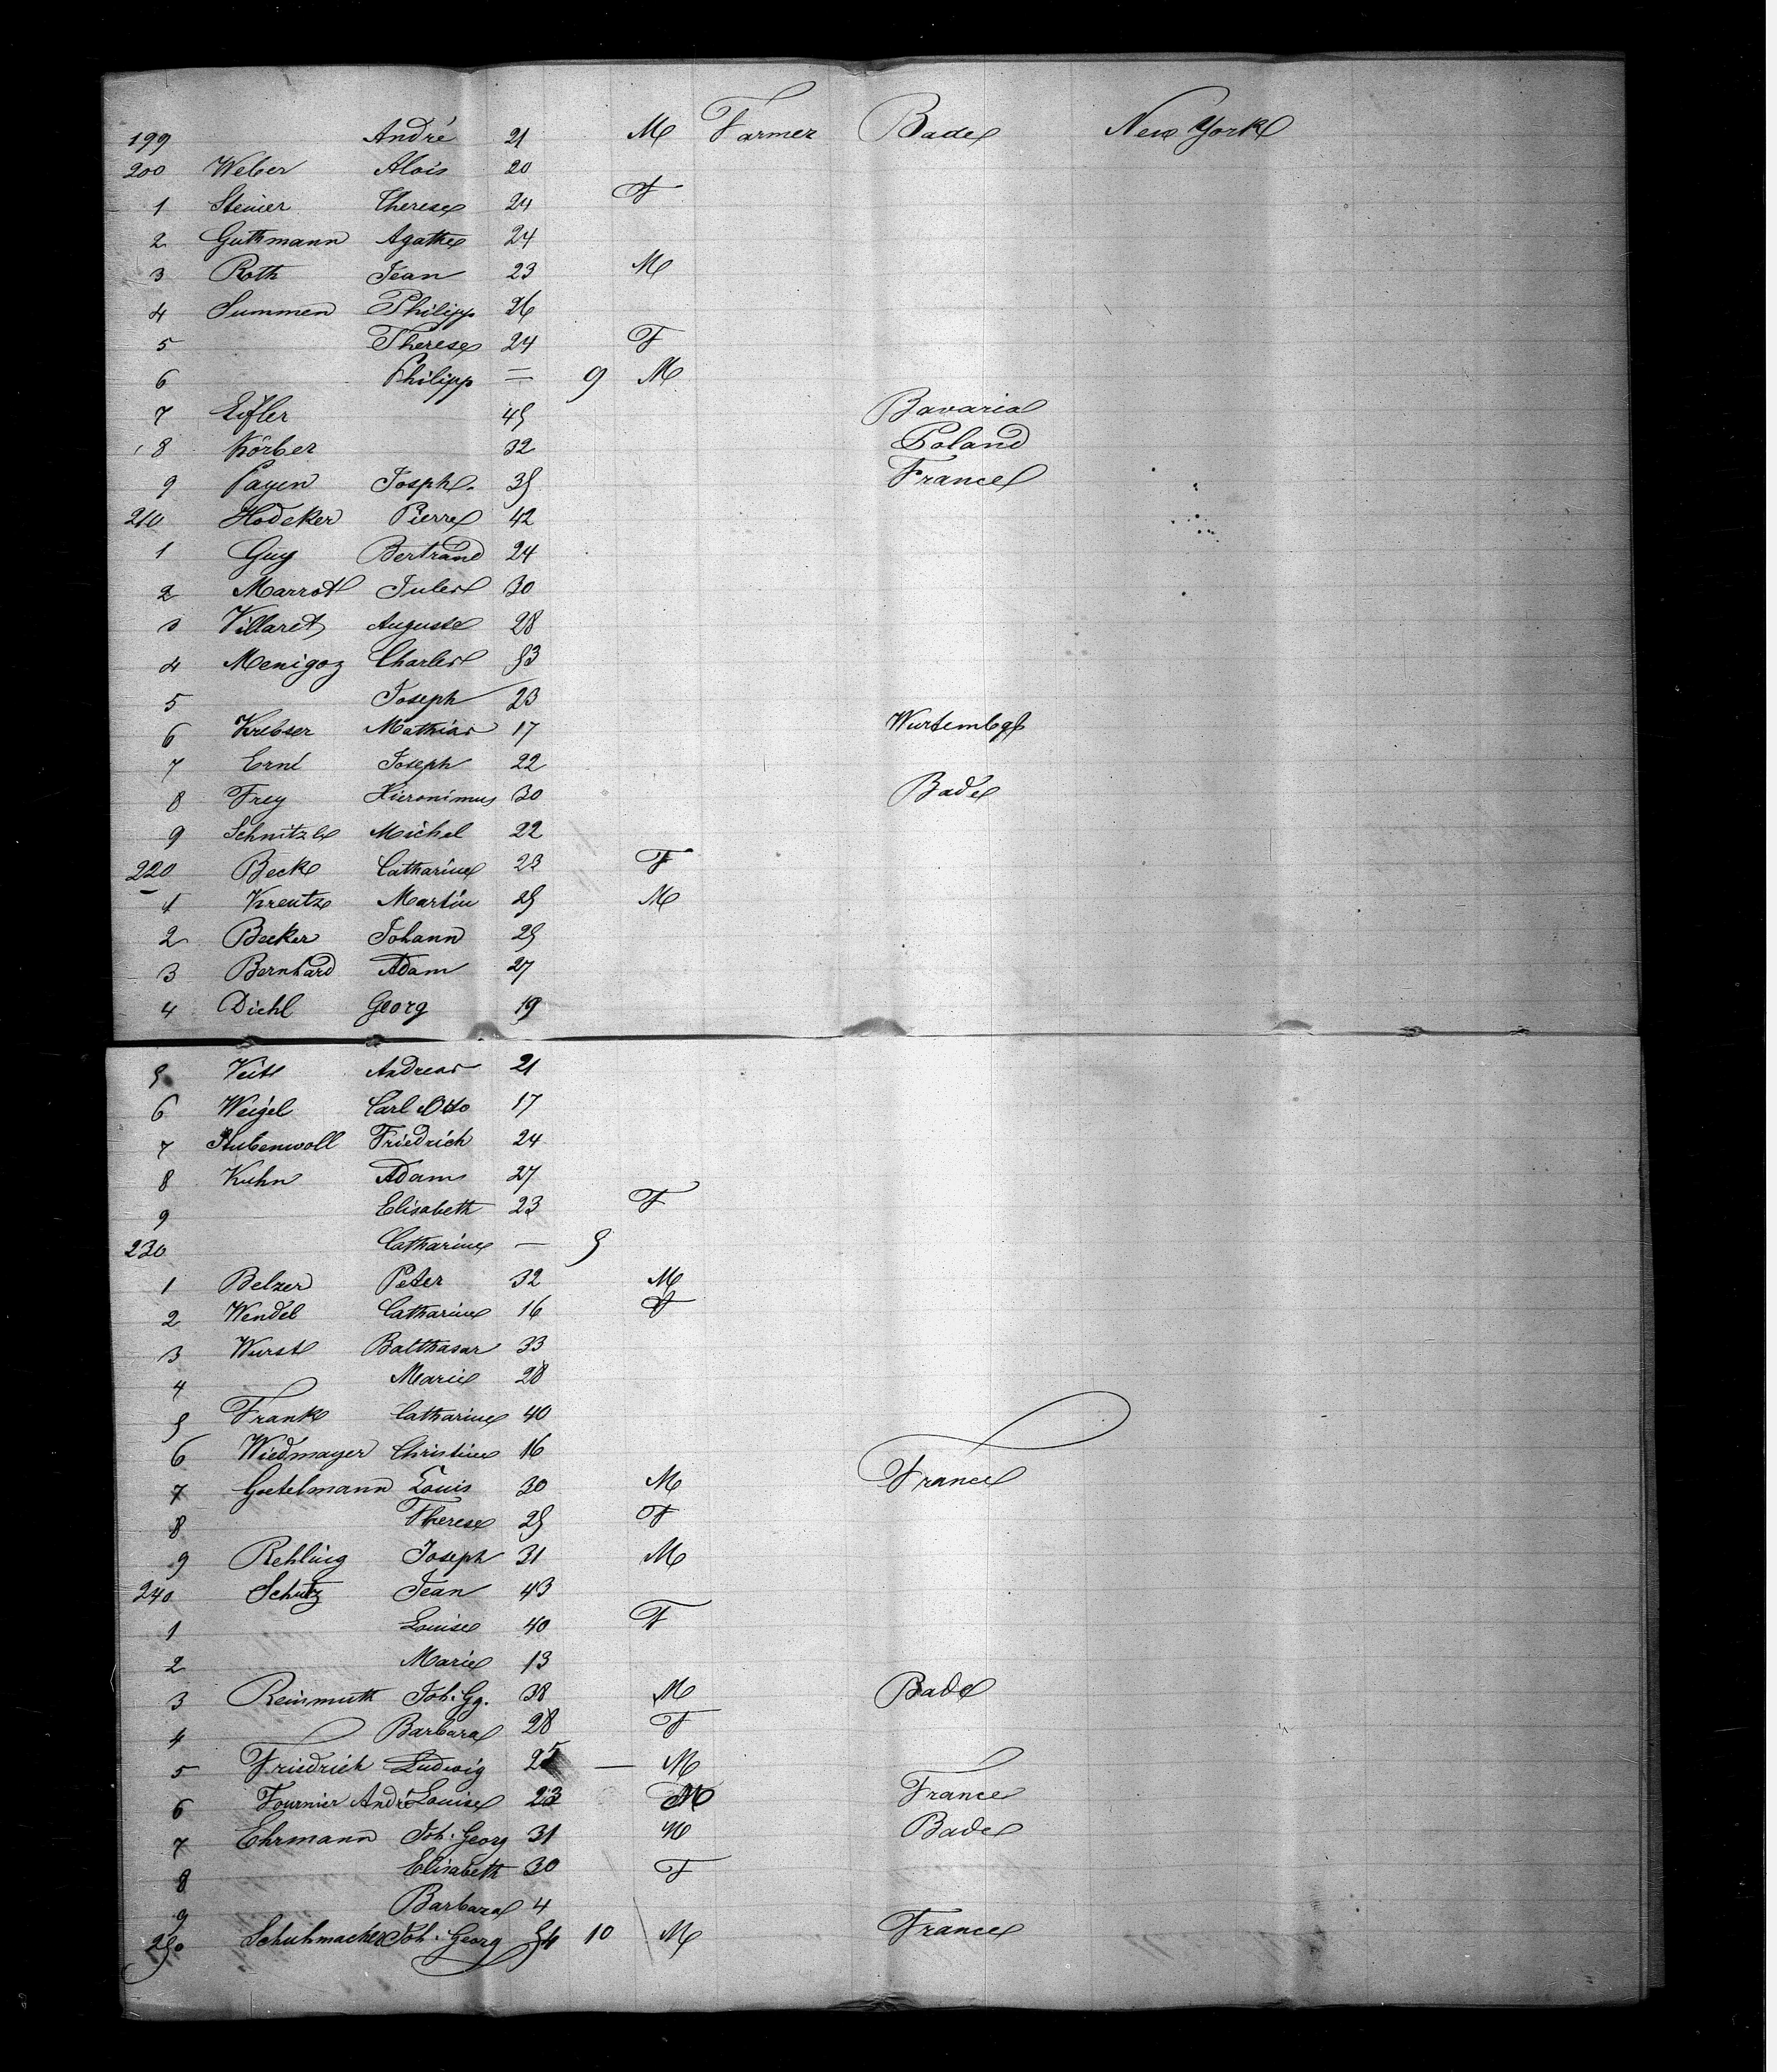 199 André 21 M Farmer Bade New York
200 Weber Alois 20
1 Steiner Therese 24 F
2 Guthmann Agathe 24
3 Roth Jean 23 M
4 Summen Philipp 26
5 Therese 24 F
6 Philipp = 9 M
7 Eifler 45 Bavaria
8 Körber 32 Poland
9 Payen Joseph 35 France
210 Hodeker Pierre 42
1 Guy Bertrand 24
2 Marrot Jules 30
3 Villaret Auguste 28
4 Menigoz Charles 53
5 Joseph 23
6 Krebser Mathias 17 Wurtembg
7 Erné Joseph 22
8 Frey Hieronimus 30 Bade
9 Schnitzle Michel 22
220 Beck Catharine 23 F
1 Kreutz Martin 25 M
2 Becker Johann 25
3 Bernhard Adam 27
4 Diehl Georg 19
5 Veit Andreas 21
6 Weigel Carl Otto 17
7 Stubenwoll Friedrich 24
8 Kuhn Adam 27
9 Elisabeth 23 F
230 Catharine — 5
1 Belzer Peter 32 M
2 Wendel Catharine 16 F
3 Wurst Balthasar 33
4 Marie 28
5 Frank Catharine 40
6 Wiedmayer Christine 16
7 Gstelmann Louis 30 M France
8 Therese 25 F
9 Rehling Joseph 31 M
240 Schutz Jean 43
1 Louise 40 F
2 Marie 13
3 Reinmuth Joh. Gg. 38 M Bade
4 Barbara 28 F
5 Friedrich Ludwig 25 — M
6 Fournier André Louise 23 M France
7 Ehrmann Joh. Georg 31 M Bade
8 Elisabeth 30 F
9 Barbara 4
250 Schuhmacher Joh. Georg 54 10 M France